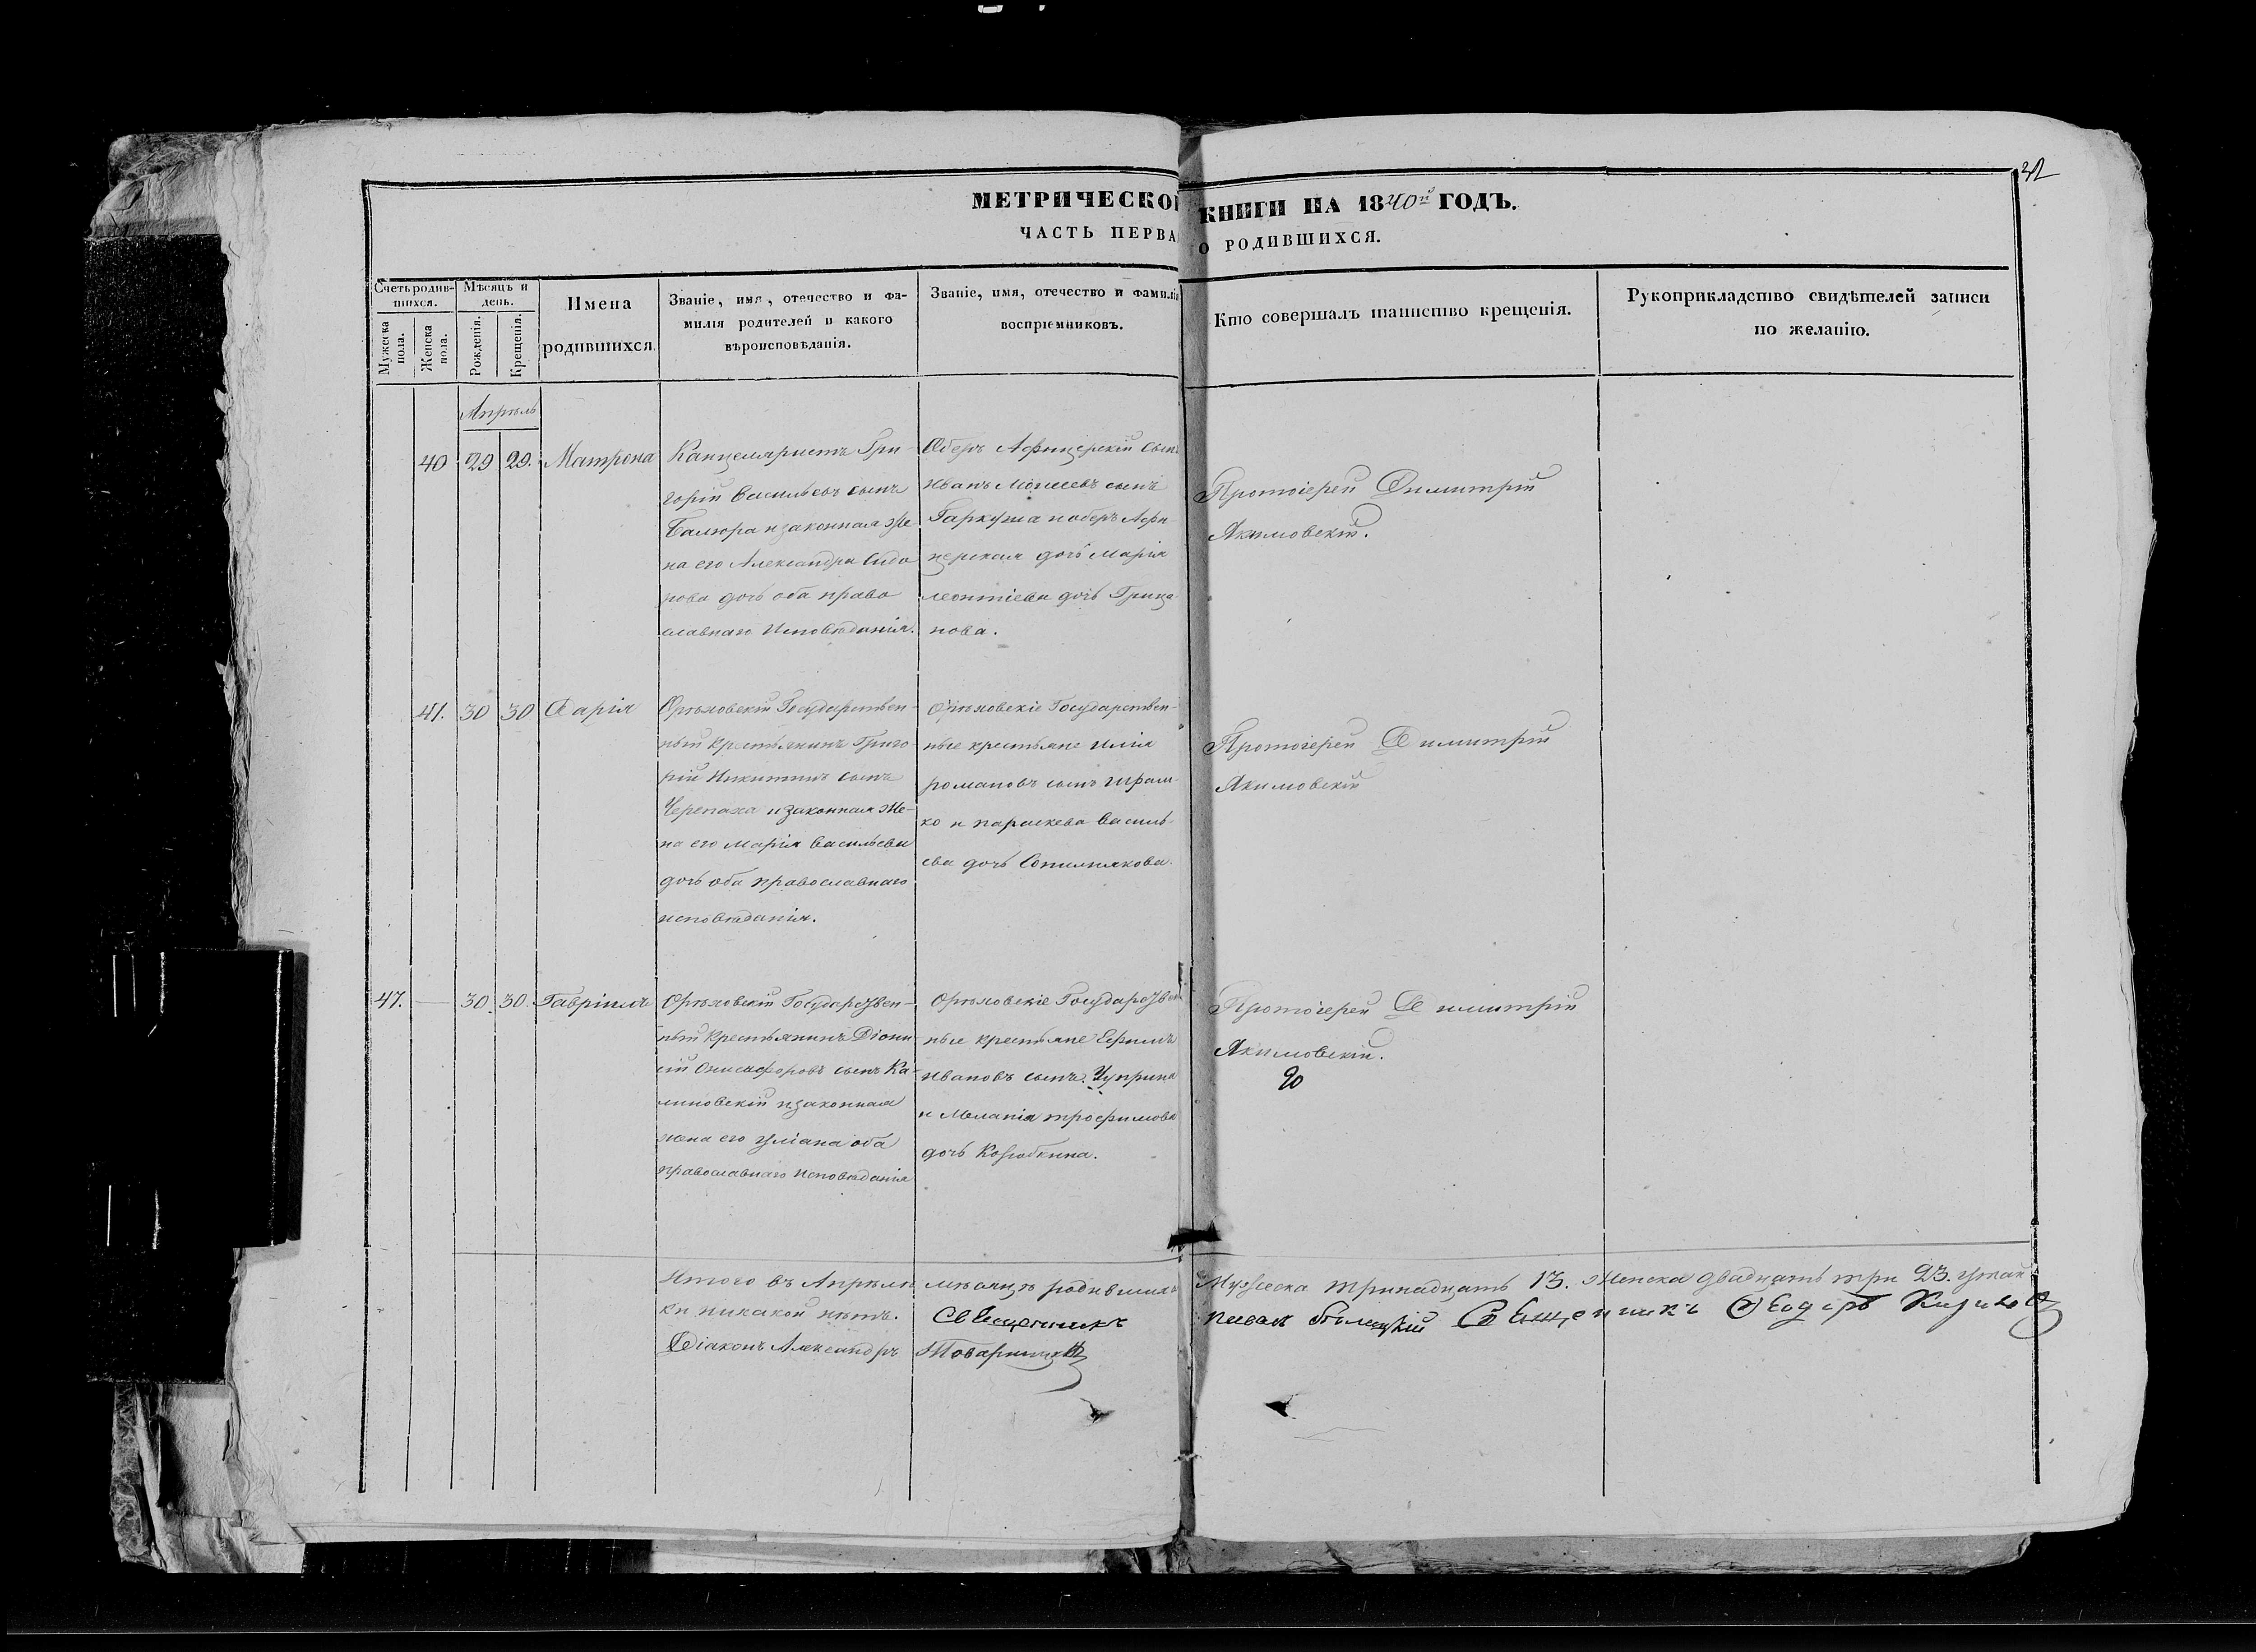 32
МЕТРИЧЕСКОЙ КНИГИ НА 1840й ГОДЪ.
ЧАСТЬ ПЕРВА О РОДИВШИХСЯ.
Счетъ родив-
шихся.
Мѣсяцъ и
день.
Мужеска
пола.
Женска
пола.
Рожденія.
Крещенія.
Имена
родившихся.
Званіе, имя, отечество и фа-
милія родителей и какого
вѣроисповѣданія.
Званіе, имя, отечество и фамилія
воспріемниковъ.
Кто совершалъ таинство крещенія.
Рукоприкладство свидѣтелей записи
по желанію.
Апрѣль
40 29 29. Матрона
Канцеляристъ Гри-
горій Васильевъ сынъ
Балюра и законная же
на его Александра Сидо
рова дочь оба право
славнаго исповѣданія.
Оберъ Афицерскій сынъ
Иванъ Моисеевъ сынъ
Гаркуша и оберъ Афи
церская дочь Марія
Леонтіева дочь Грица
нова.
Протоіерей Димитрій
Якимовскій.
41. 30 30 Дарія
Орѣховскій Государствен-
ный крестьянинъ Григо-
рій Никитинъ сынъ
Черепаха и законная же-
на его Марія Васильева
дочь оба православнаго
исповѣданія.
Орѣховскіе Государствен-
ные крестьяне Илія
Романовъ сынъ
ко и Параскева Василь-
ева дочь
Протоіерей Димитрій
Якимовскій
47. — 30. 30. Гавріилъ
Орѣховскій Государствен-
ный крестьянинъ Діони
сій Онисифоровъ сынъ Ка-
линовскій и законная
жена его Уліана оба
православнаго исповѣданія
Орѣховскіе Государствен
ные крестьяне Ефимъ
Ивановъ сынъ Чуприна
и Меланія Трофимова
дочь Коробкина.
Протоіерей Димитрій
Якимовскій.
20
Итого въ Апрѣлѣ мѣсяцѣ родившихся Мужеска тринадцать 13. Женска двадцать три 23.
ки никакой нѣтъ. Священникъ Священникъ Ѳеодоръ
Діаконъ Александръ